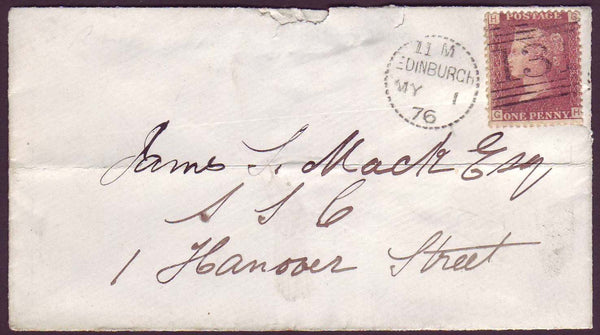 11 M
EDINBURGH
MY 1
76
H G
POSTAGE
ONE PENNY
G H
James S. Mack Esq
S S C
1 Hanover Street